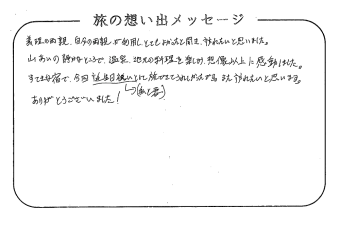 旅の想い出メッセージ
義理の両親、自分の両親が利用しとても良かったと聞き、訪れたいと思いました。
山あいの静かなところで、温泉、地元の料理を楽しめ、想像以上に感動しました。
すてきな宿で、今回誕生日祝いとして旅できてうれしかったです。また訪れたいと思います。
ありがとうございました!